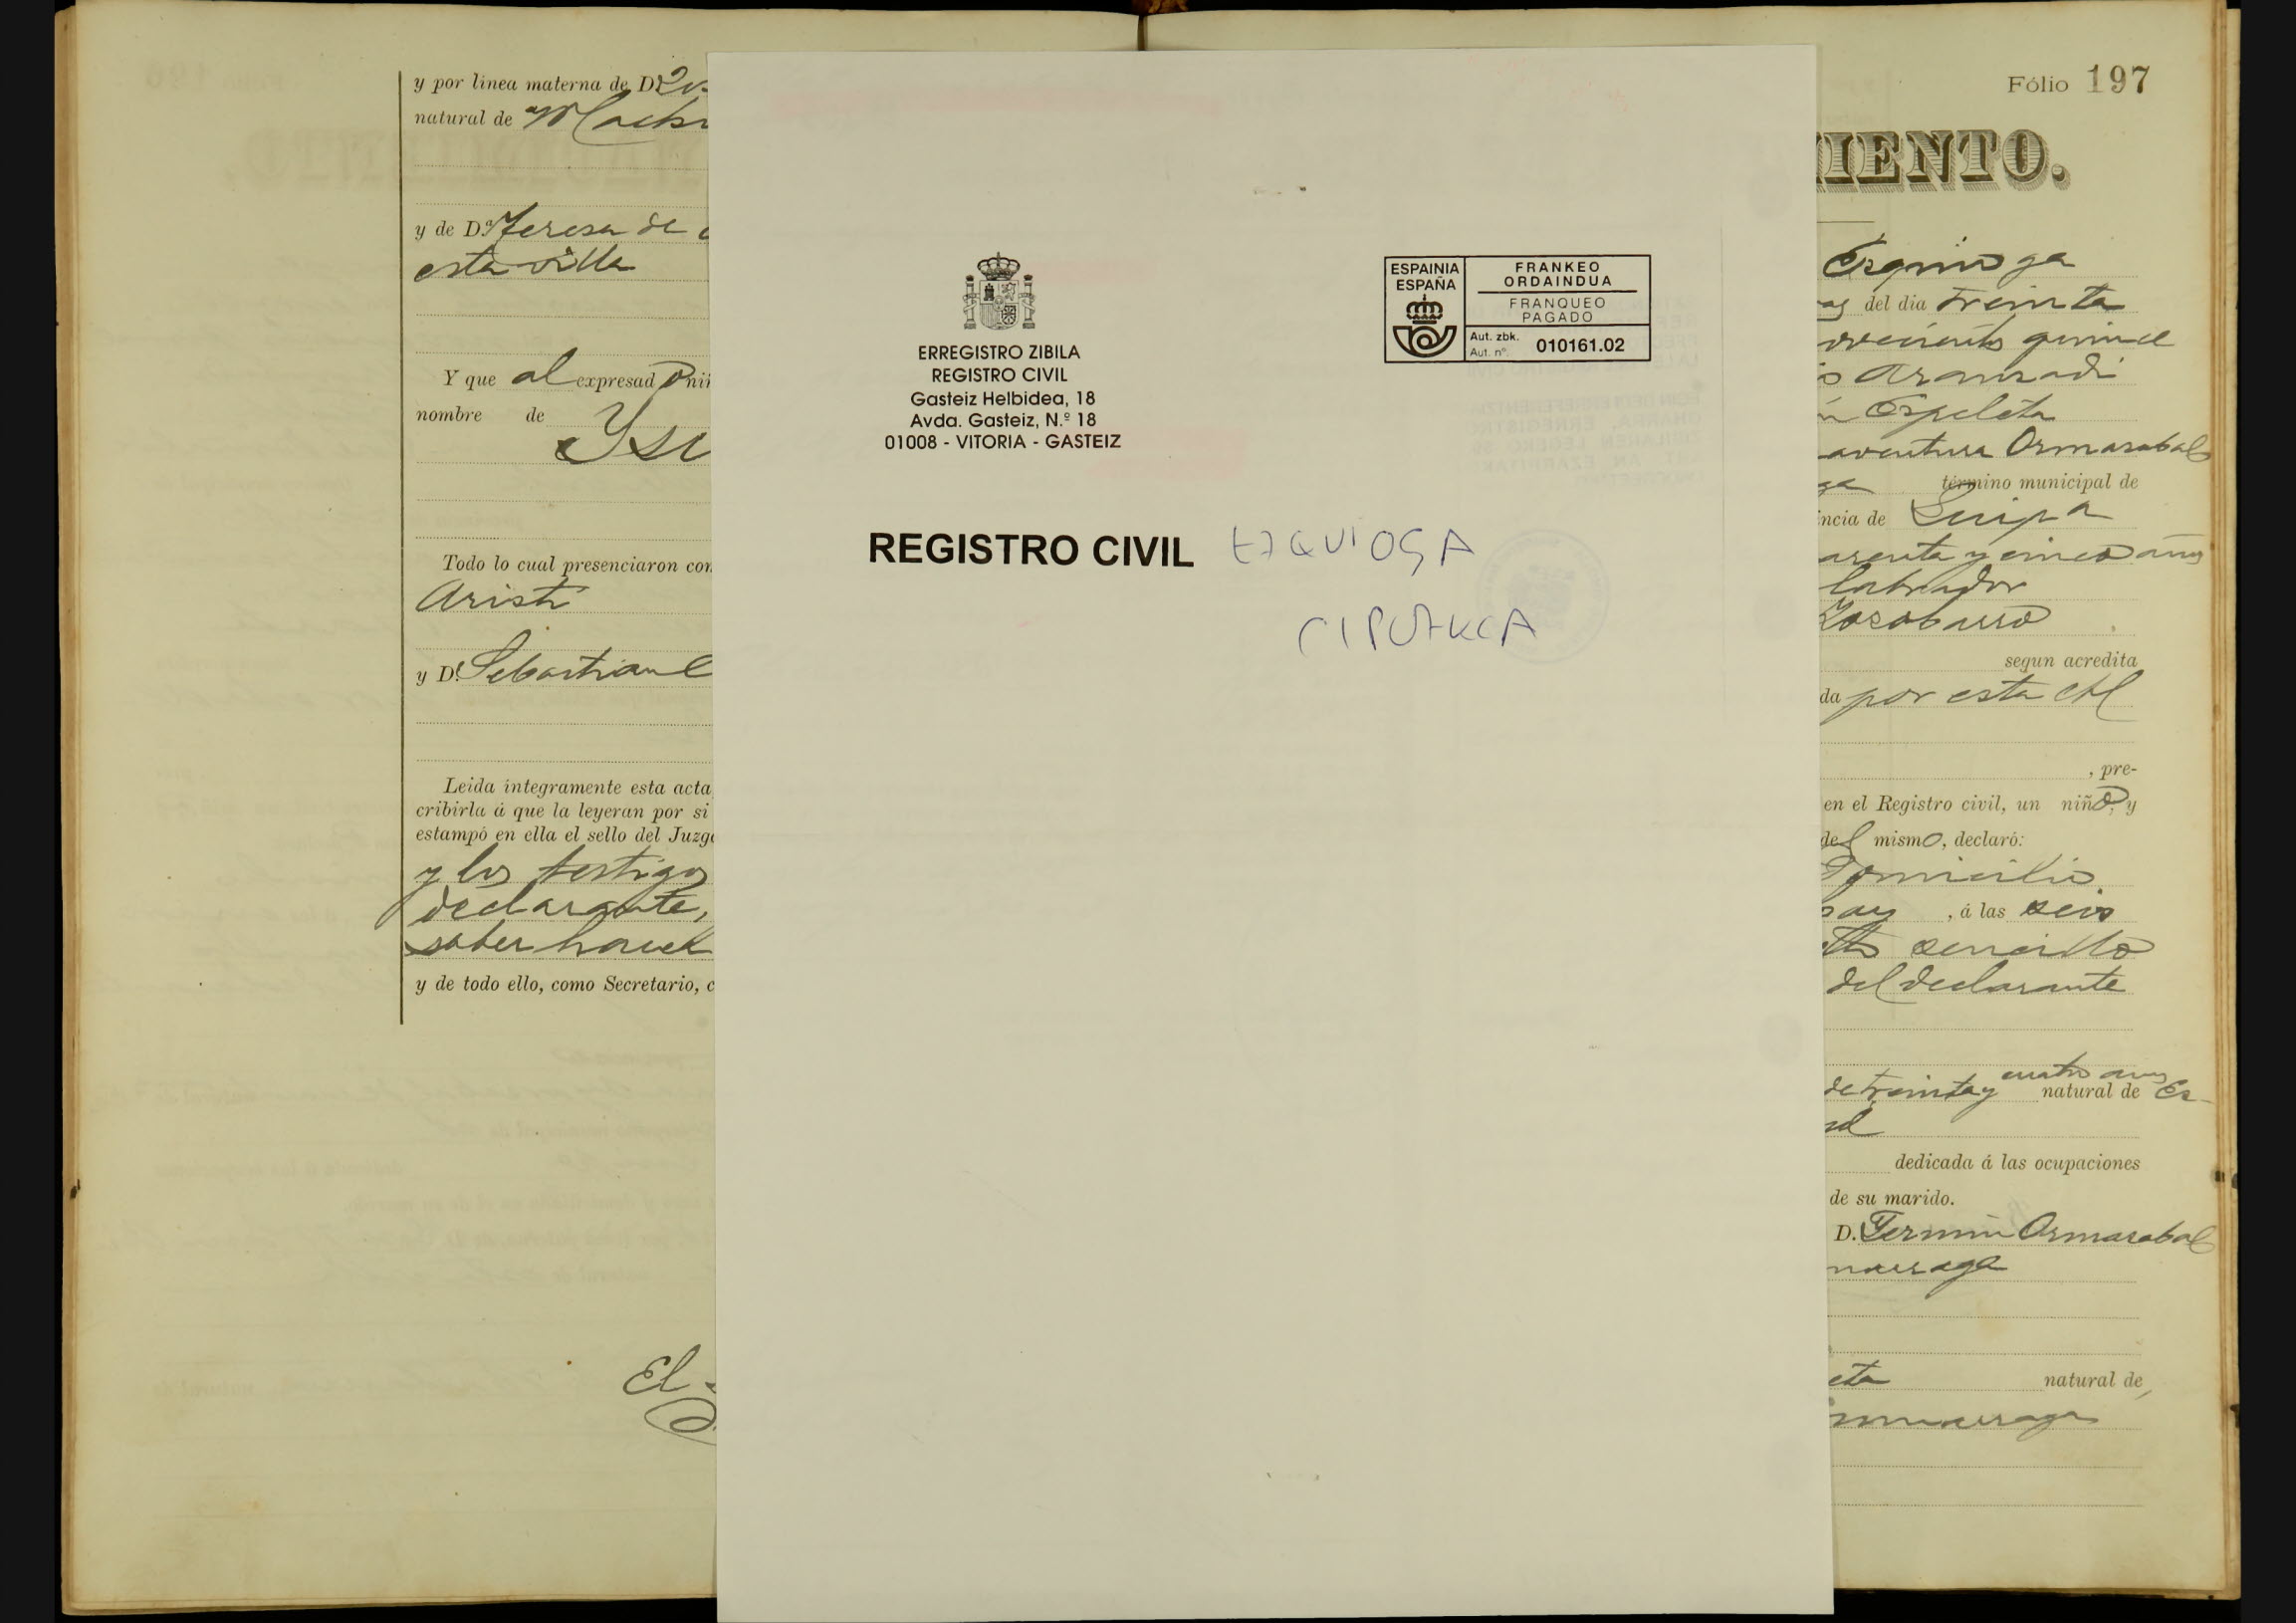 y por línea materna de D.
natural de
y de D.ª Teresa de
esta villa
Y que al expresado niñ
nombre de Ysi
Todo lo cual presenciaron com
Aristi
y D. Sebastian
Leida íntegramente esta acta
cribirla á que la leyeran por sí
estampó en ella el sello del Juzga
y los testigos
declarante,
saber hacer
y de todo ello, como Secretario, c
El
ERREGISTRO ZIBILA
REGISTRO CIVIL
Gasteiz Helbidea, 18
Avda. Gasteiz, N.º 18
01008 - VITORIA - GASTEIZ
ESPAINIA
ESPAÑA
FRANKEO
ORDAINDUA
FRANQUEO
PAGADO
Aut. zbk.
Aut. nº.
010161.02
REGISTRO CIVIL EZQUIOGA
GIPUZKOA
Fólio 197
MIENTO.
Ezquioga
del dia treinta
novecientos quince
Aranzadi
Ezpeleta
aventura Ormazabal
término municipal de
incia de Guipa
arenta y cinco años
labrador
segun acredita
da por esta
, pre-
en el Registro civil, un niño, y
del mismo, declaró:
Domicilio
, á las seis
sencillo
del declarante
de treinta y cuatro años natural de Ez-
dedicada á las ocupaciones
de su marido.
D. Fermin Ormazabal
marraga
eta natural de
marraga